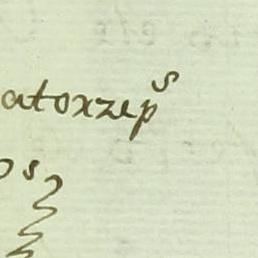 atoxzeps
os